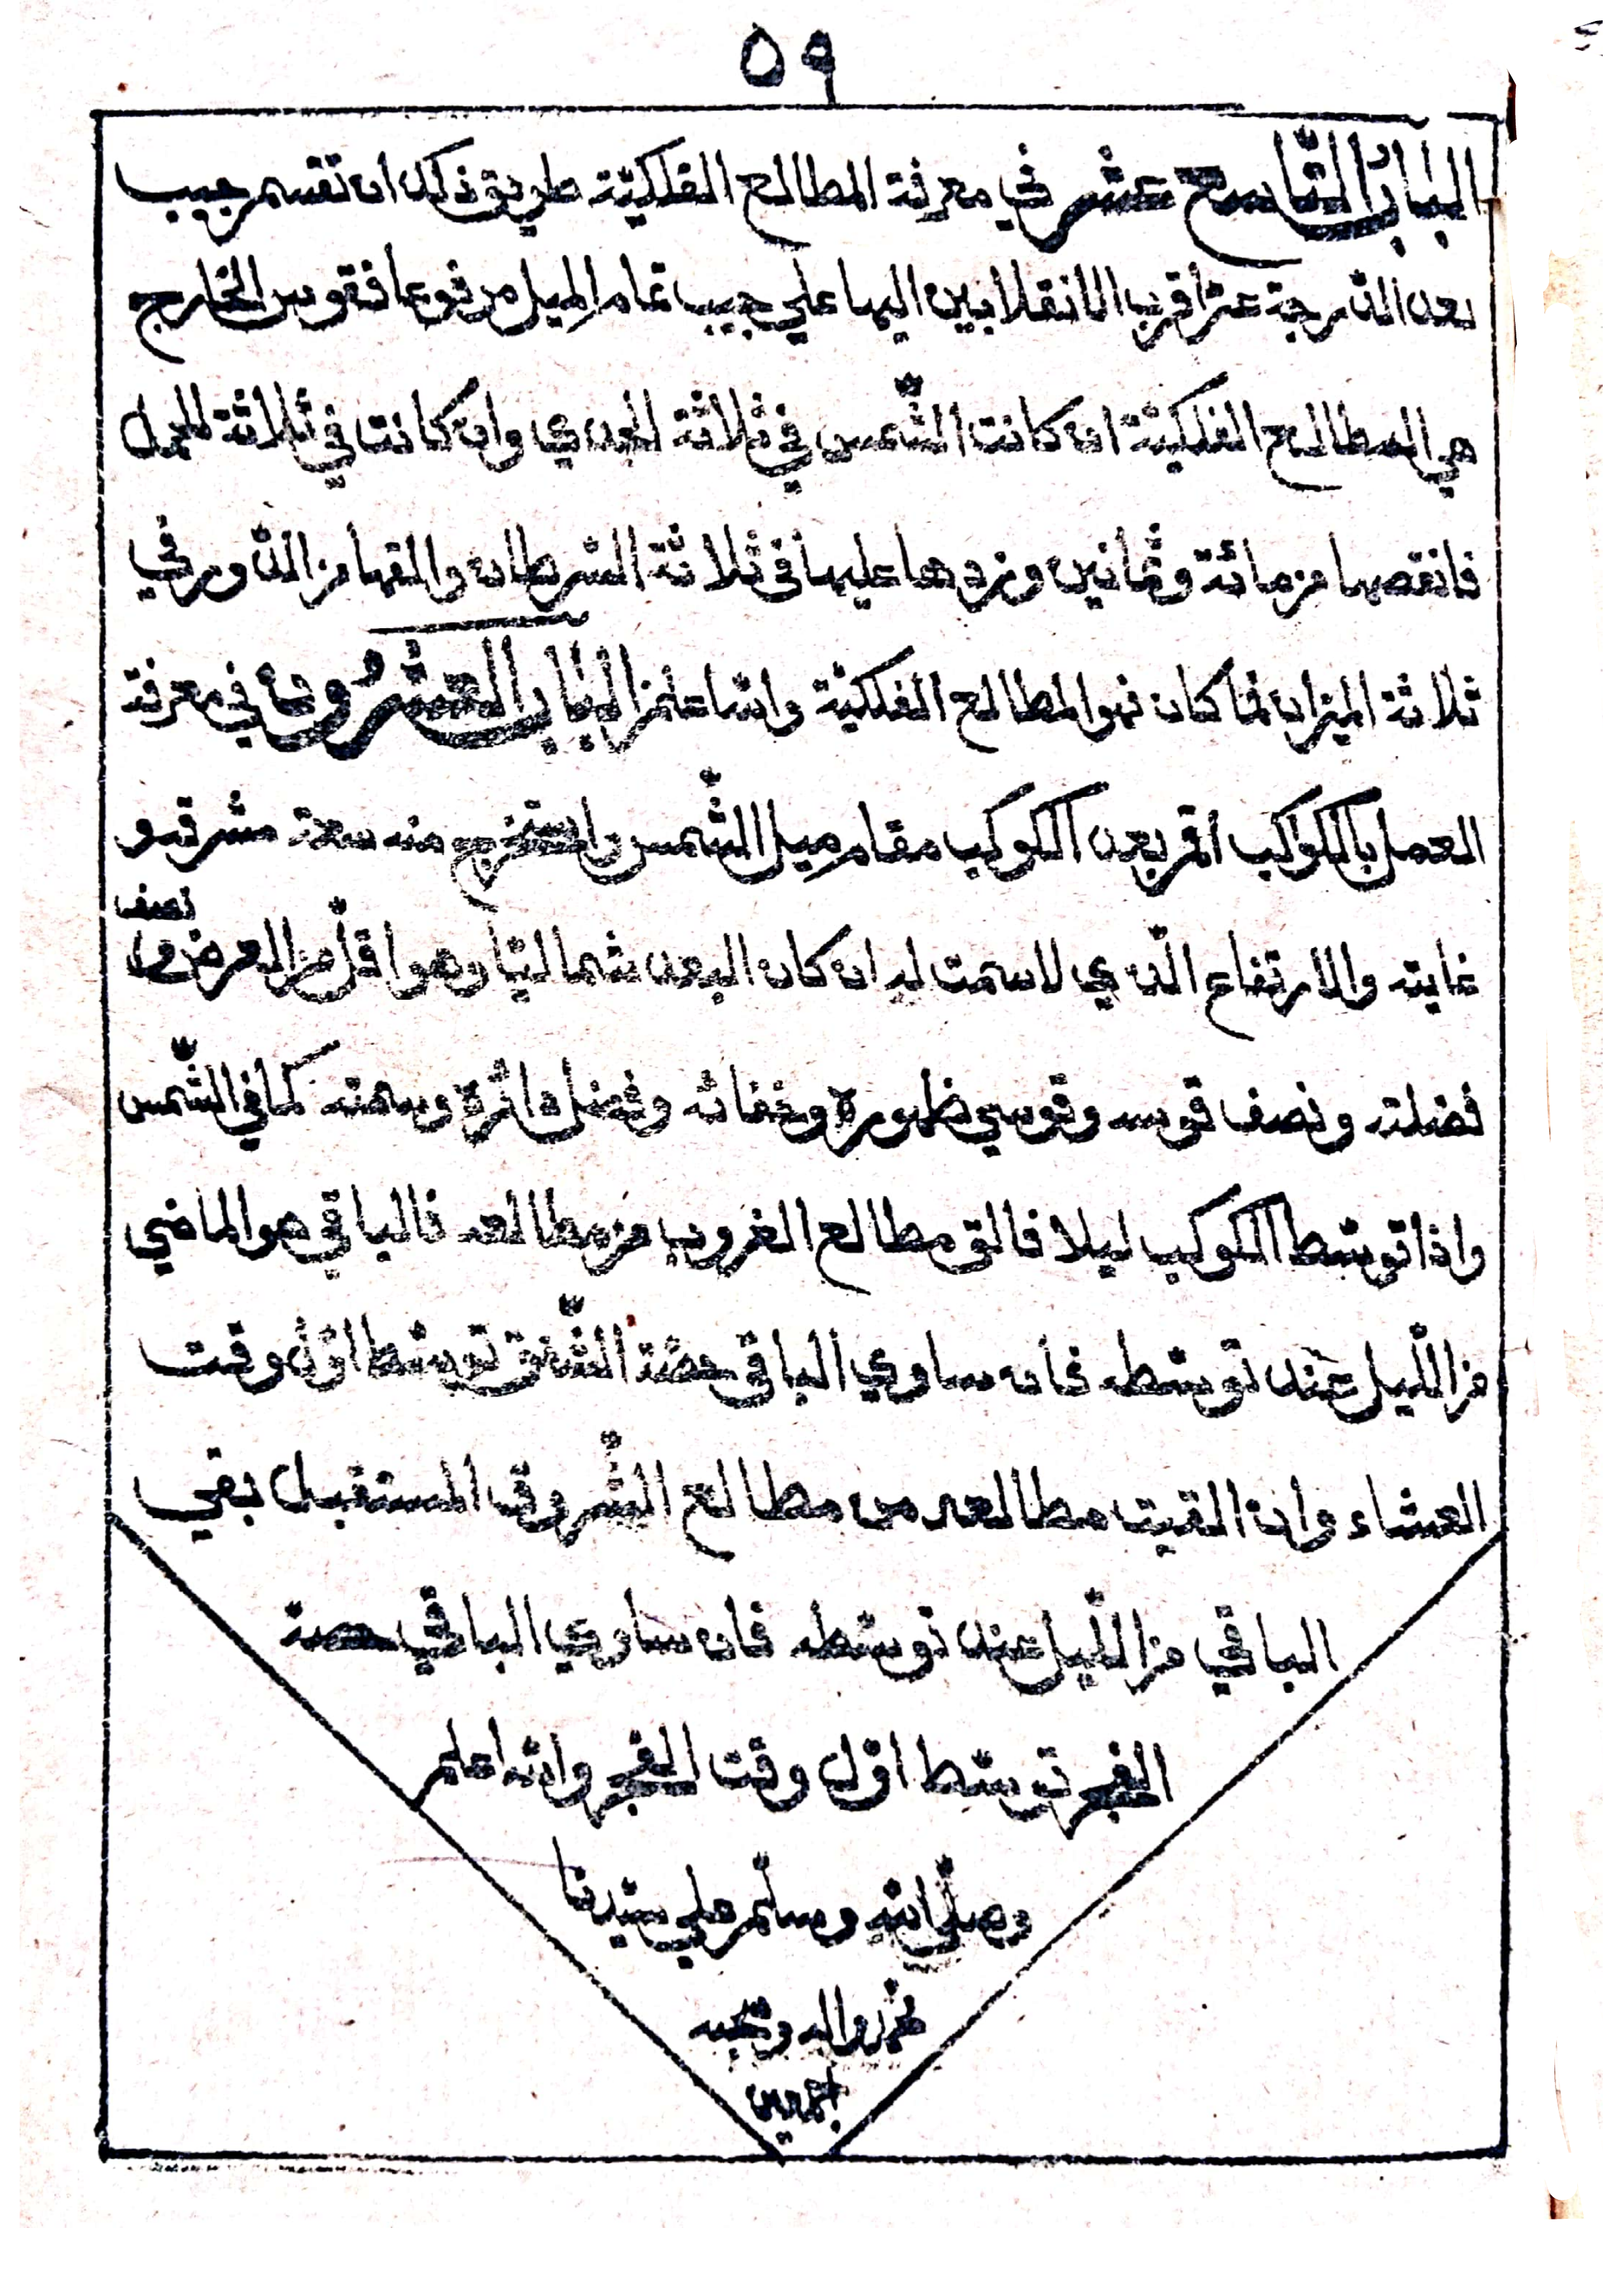 ٥٩
الباب التاسع عشر في معرفة المطالع الفلكيّة طريق ذلك ان تقسم جيب
بعد الدرجة عن اقرب الانقلابين اليها علي جيب تمام الميل مرفوعا فقوس الخارج
هي المطالع الفلكيّة ان كانت الشّمس في ثلاثة الجدي وان كانت في ثلاثة الحمل
فانقصها من مائة وثمانين وزدها عليها في ثلاثة السّرطان والقها من الدّور في
ثلاثة الميزان فما كان فهو المطالع الفلكيّة والله اعلم الباب العشرون في معرفة
العمل بالكواكب اقم بعد الكوكب مقام ميل الشّمس واستخرج منه سعة مشرقه و
نصف
غايته والارتفاع الّذي لا سمت له ان كان البعد شماليّا وهو اقلّ من العرض و
فضلته ونصف قوسه وقوسي ظهوره وخفائه وفضل دائره وسمته كما في الشّمس
واذا توسّط الكوكب ليلا فالق مطالع الغروب من مطالعه فالباقي هو الماضي
من اللّيل عند توسّطه فان ساوي الباقي حصّة الشّفق توسّط اوّل وقت
العشاء وان القيت مطالعه من مطالع الشّروق المستقبل بقي
الباقي من اللّيل عند توسّطه فان ساوي الباقي حصة
الفجر توسّط اوّل وقت الفجر والله اعلم
وصلّى الله وسلّم علي سيّدنا
محمد واله وصحبه
اجمعين